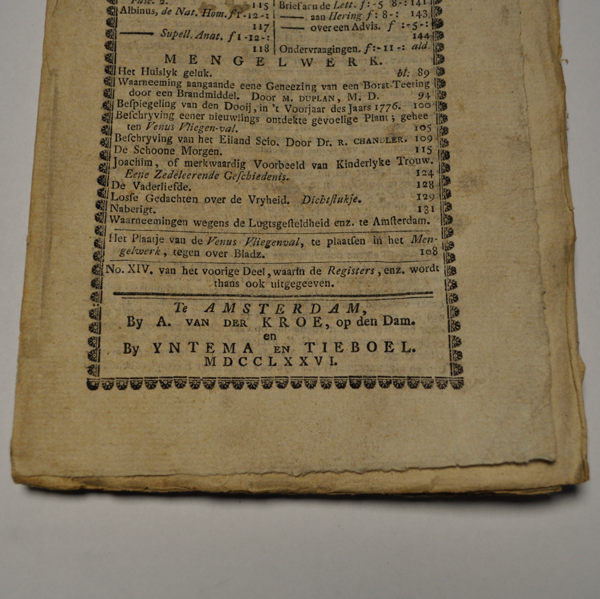 115
Albinus, de Nat. Hom. f 1-12-:
117
—— Supell. Anat. f 1-12-:
118
Brief aan de Lett. f:-5 8-: 141
—— aan Hering f: 8-: 143
—— over een Advis. f :-5-:
144
Ondervraagingen. f:-11-: ald.
MENGELWERK.
Het Huislyk geluk. bl. 89
Waarneeming aangaande eene Geneezing van een Borst-Teering
door een Brandmiddel. Door M. DUPLAN, M. D. 94
Bespiegeling van den Dooij, in 't Voorjaar des Jaars 1776. 100
Beschryving eener nieuwlings ontdekte gevoelige Plant; gehee
ten Venus Vliegen-val. 105
Beschryving van het Eiland Scio. Door Dr. R. CHANDLER. 109
De Schoone Morgen. 115
Joachim, of merkwaardig Voorbeeld van Kinderlyke Trouw.
Eene Zedeleerende Geschiedenis. 124
De Vaderliefde. 128
Losse Gedachten over de Vryheid. Dichtstukje. 129
Naberigt. 131
Waarneemingen wegens de Lugtsgesteldheid enz. te Amsterdam.
Het Plaatje van de Venus Vliegenval, te plaatsen in het Men-
gelwerk, tegen over Bladz. 108
No. XIV. van het voorige Deel, waarin de Registers, enz. wordt
thans ook uitgegeeven.
Te AMSTERDAM,
By A. VAN DER KROE, op den Dam.
en
By YNTEMA EN TIEBOEL.
MDCCLXXVI.